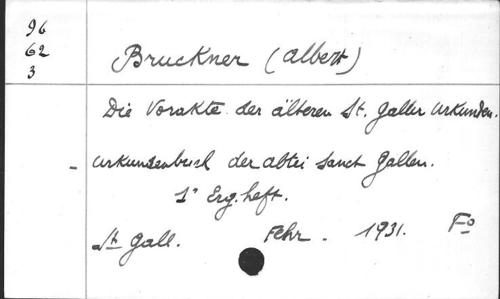 96
62
3
Bruckner (Albert)
Die Vorakte der älteren St. Galler Urkunden.
- Urkundenbuch der Abtei Sanct Gallen.
1° Erg. heft.
St Gall. Fehr. 1931. Fo